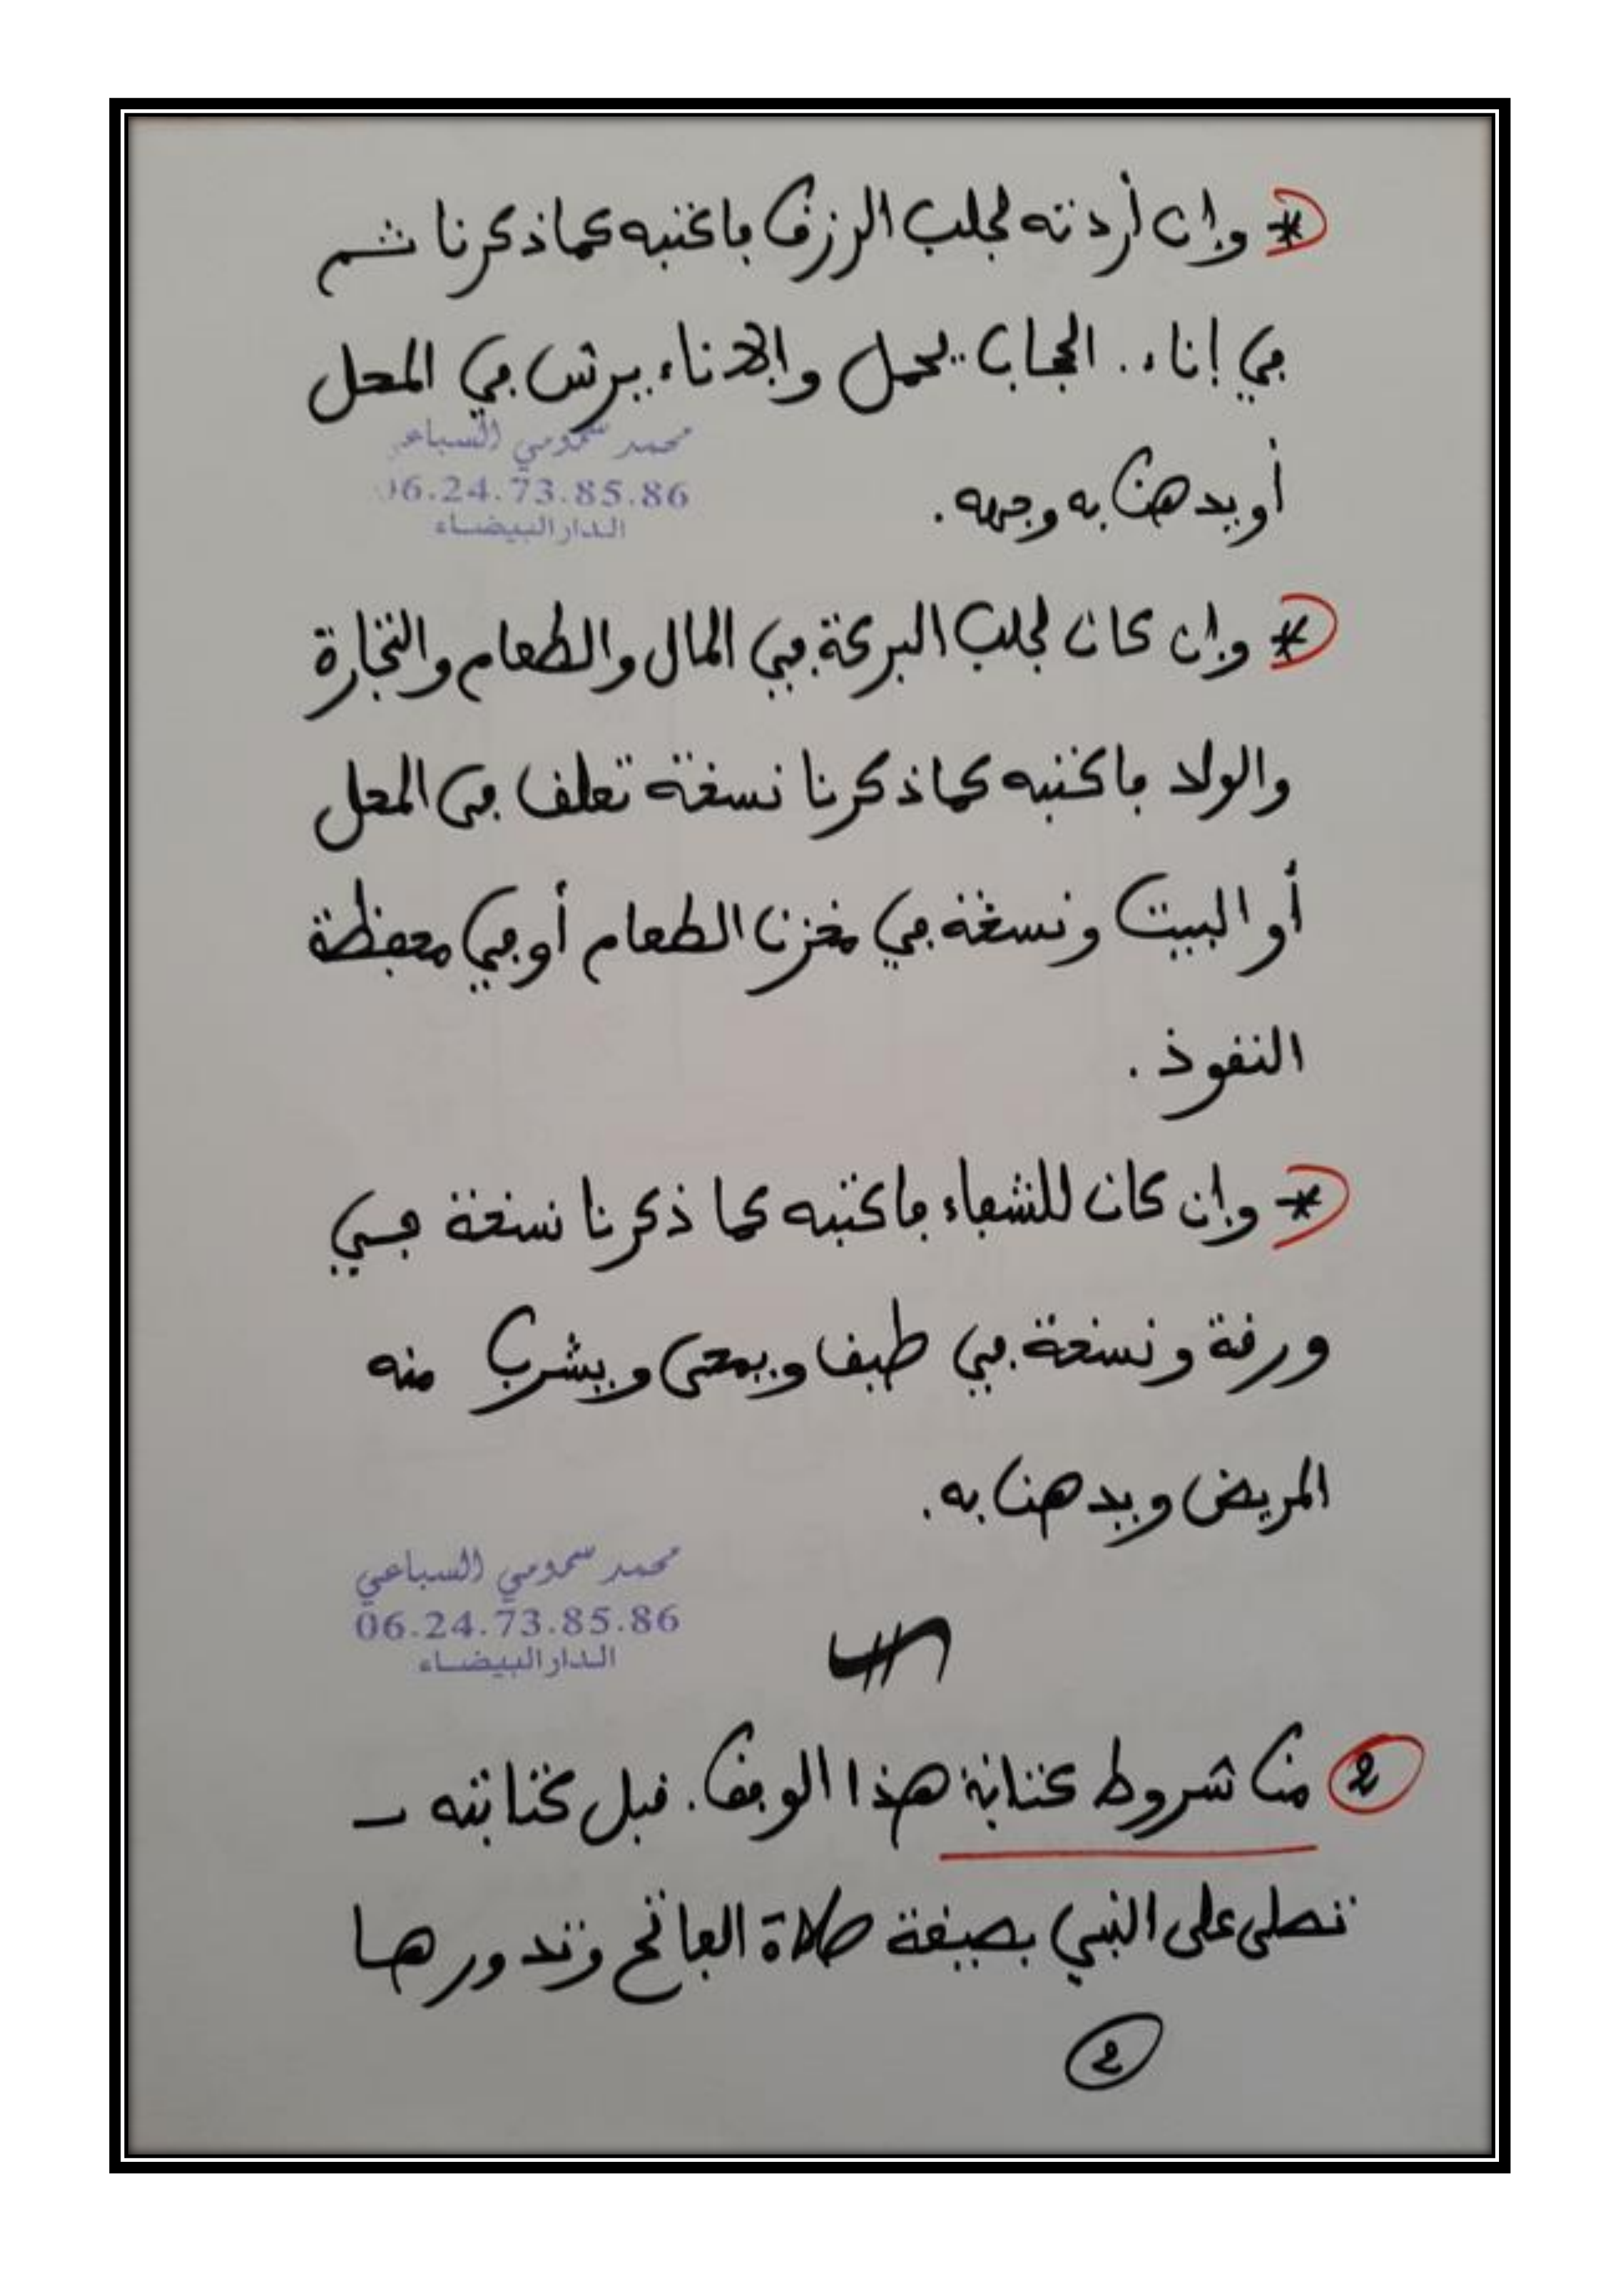 * وإن أردته لجلب الرزق فاكتبه كما ذكرنا ثم
في إناء. الحجاب يحمل والإناء يرش في المحل
محمد سمومي السباعي
06.24.73.85.86
الدار البيضاء
أو يدهن به وجهه.
* وإن كان لجلب البركة في المال والطعام والتجارة
والولد فاكتبه كما ذكرنا نسخة تعلق في المحل
أو البيت ونسخة في مخزن الطعام أو في محفظة
النقوذ.
* وإن كان للشفاء فاكتبه كما ذكرنا نسخة في
ورقة ونسخة في طبق ويمحى ويشرب منه
المريض ويدهن به.
محمد سمومي السباعي
06.24.73.85.86
الدار البيضاء
2 من شروط كتابة هذا الوفق. قبل كتابته -
تصلى على النبي بصيغة صلاة الفاتح وتدورها
2